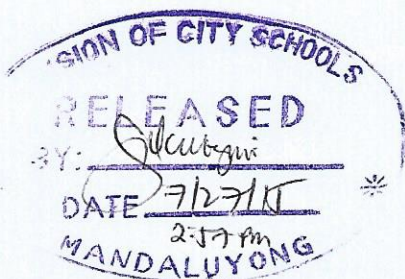 SION OF CITY SCHOOLS
RELEASED
BY:
DATE 7/27/15
2:57 PM
MANDALUYONG